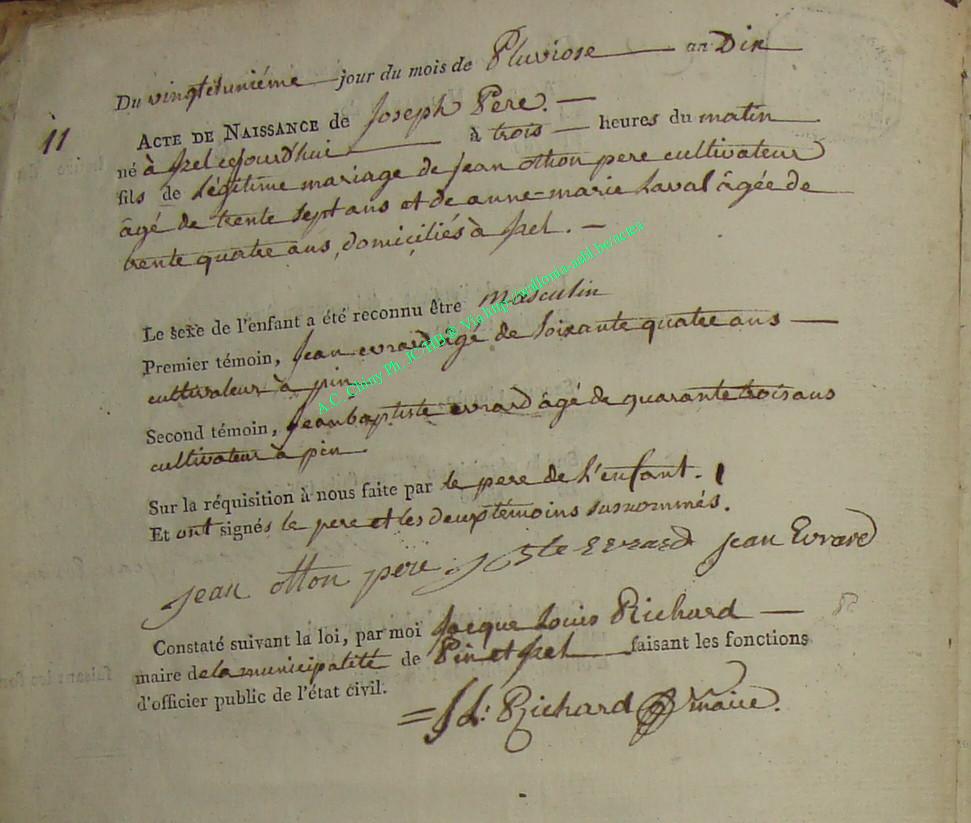 Du vingtetunième jour du mois de Pluviose an Dix
11
ACTE DE NAISSANCE de Joseph Pere. —
né à Izel cejourdhui à trois — heures du matin
fils de légitime mariage de jean othon pere cultivateur
âgé de trente sept ans et de anne-marie Laval âgée de
trente quatre ans, domiciliés à Izel. —
Le sexe de l'enfant a été reconnu être masculin
Premier témoin, Jean evrard âgé de soixante quatre ans —
cultivateur à pin
Second témoin, Jeanbaptiste evrard âgé de quarante trois ans
cultivateur à pin.
Sur la réquisition à nous faite par le pere de l'enfant.
Et ont signés le pere et les deux témoins susnommés.
jean otton pere J bste Evrard jean Evrard
Constaté suivant la loi, par moi Jacque Louis Richard —
maire de la municipalité de Pin et Izel faisant les fonctions
d'officier public de l'état civil.
JL: Richard maire.
A.C. Chiny Ph. JC/HB® Via http://wallonia-asbl.be/actes